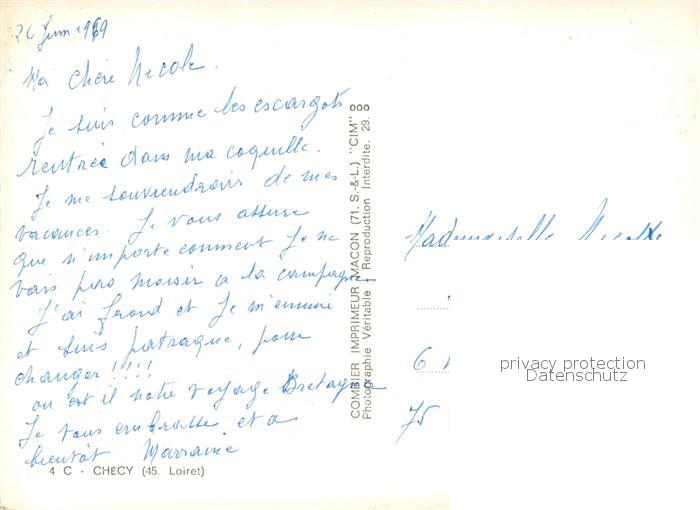 26 Juin 1969
Ma chère Nicole.
Je suis comme les escargots
rentrée dans ma coquille.
Je me souviendrais de mes
vacances. Je vous assure
que n'importe comment Je ne
vais pas moisir a la campagne
J'ai froid et Je m'ennuie
et suis patraque, pour
changer !!!!
ou est il notre voyage Bretagne
Je vous embrasse et a
bientôt Marraine
4 C - CHÉCY (45. Loiret)
COMBIER IMPRIMEUR MACON (71. S.-&-L.) "CIM"
Photographie Véritable Reproduction Interdite. 29.
Mademoiselle
6
75
privacy protection
Datenschutz